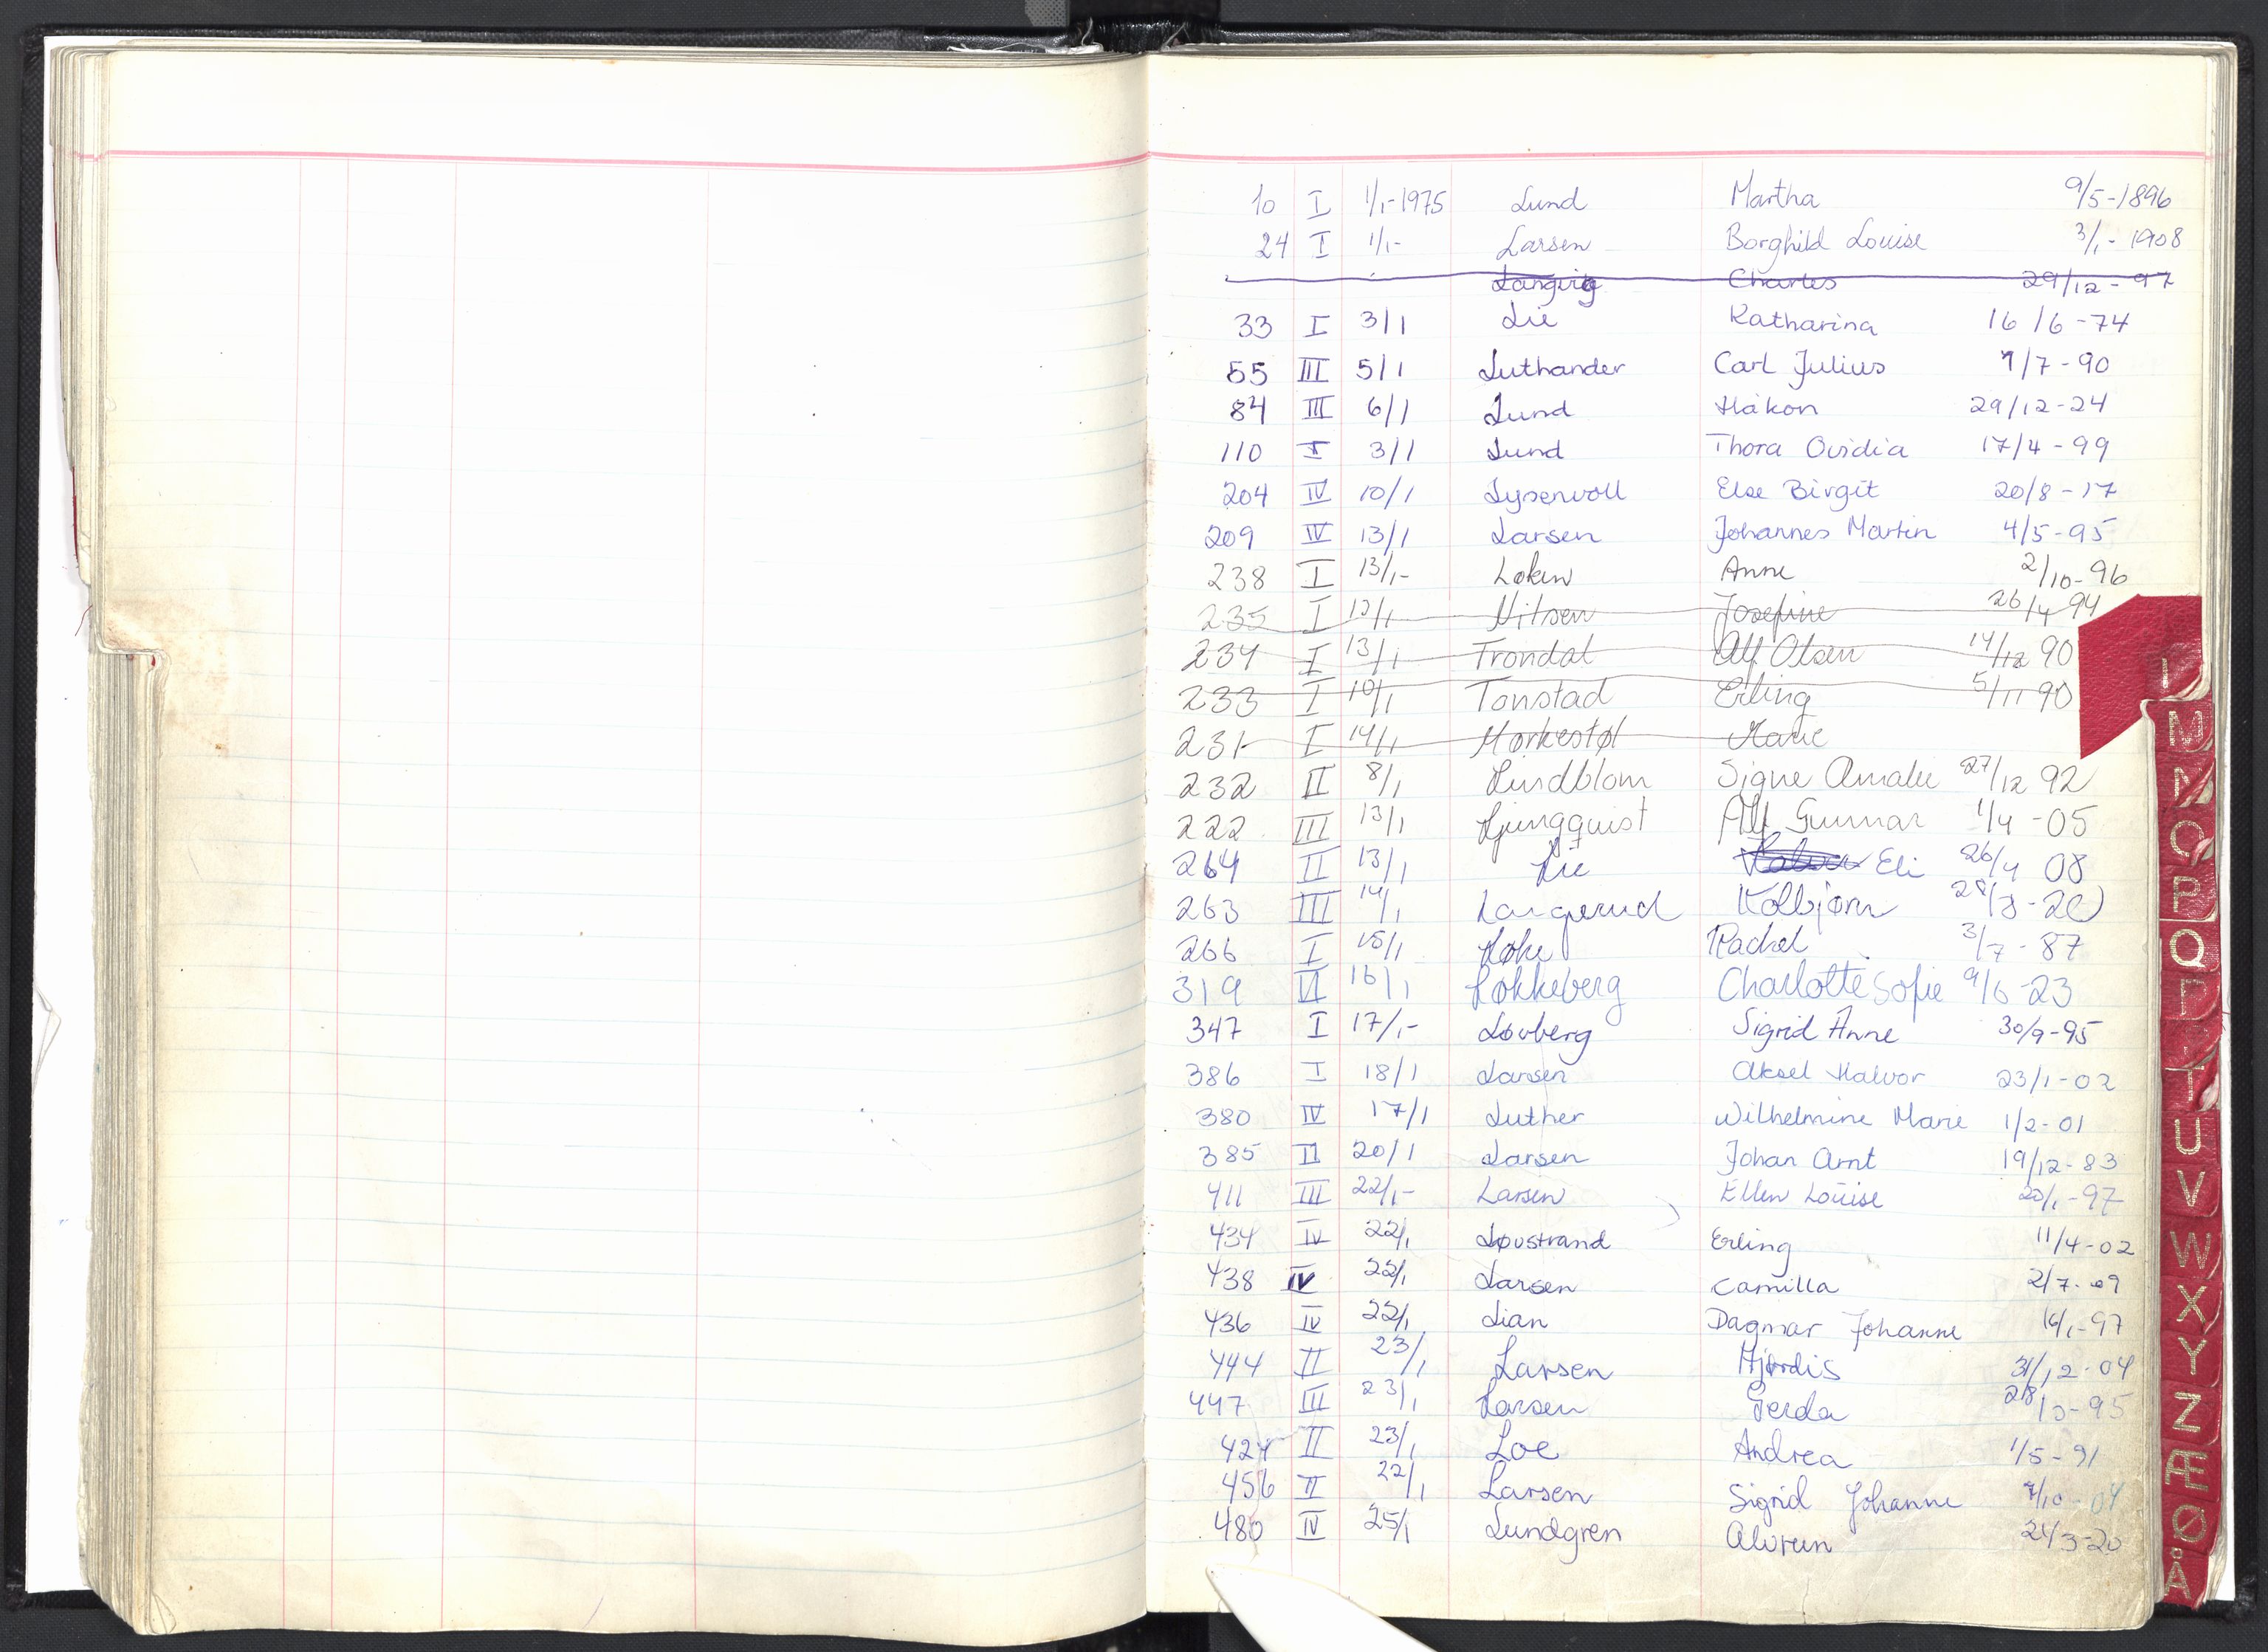 10 I 1/1-1975 Lund Martha 9/5-1896
24 I 1/1- Larsen Borghild Louise 3/1-1908
Langvig Charles 29/12-97
33 I 3/1 Lie Katharina 16/6-74
55 III 5/1 Luthander Carl Julius 9/7-90
84 III 6/1 Lund Håkon 29/12-24
110 I 3/1 Lund Thora Ovidia 17/4-99
204 IV 10/1 Lysenvoll Else Birgit 20/8-17
209 IV 13/1 Larsen Johannes Martin 4/5-95
238 I 13/1- Løken Anne 2/10-96
235 I 13/1 Nilsen Josefine 26/4 94
234 I 13/1 Trondal Alf Olsen 14/12 90
233 I 10/1 Tonstad Erling 5/11 90
231 I 14/1 Mørkestøl Marie
232 II 8/1 Lindblom Signe Amalie 27/12 92
222 III 13/1 Ljungquist Alf Gunnar 1/4-05
264 II 13/1 Lie Eli 26/4 08
263 III 14/1 Langerud Kolbjørn 28/3-20
266 I 15/1 Løke Rachel 3/7-87
319 VI 16/1 Løkkeberg Charlotte Sofie 9/6-23
347 I 17/1- Løvberg Sigrid Anne 30/9-95
386 I 18/1 Larsen Aksel Halvor 23/1-02
380 IV 17/1 Luther Wilhelmine Marie 1/2-01
385 II 20/1 Larsen Johan Arnt 19/12-83
411 III 22/1- Larsen Ellen Louise 20/1-97
434 IV 22/1 Løvstrand Erling 11/4-02
438 IV 22/1 Larsen Camilla 2/7-09
436 IV 22/1 Lian Dagmar Johanne 16/1-97
444 II 23/1 Larsen Hjørdis 31/12-04
447 III 23/1 Larsen Gerda 28/10-95
424 II 23/1 Loe Andrea 1/5-91
456 II 22/1 Larsen Sigrid Johanne 7/10-04
480 IV 25/1 Lundgren 24/3-20
L
M
N
O
P
Q
R
T
U
V
W
X
Y
Z
Æ
Ø
Å